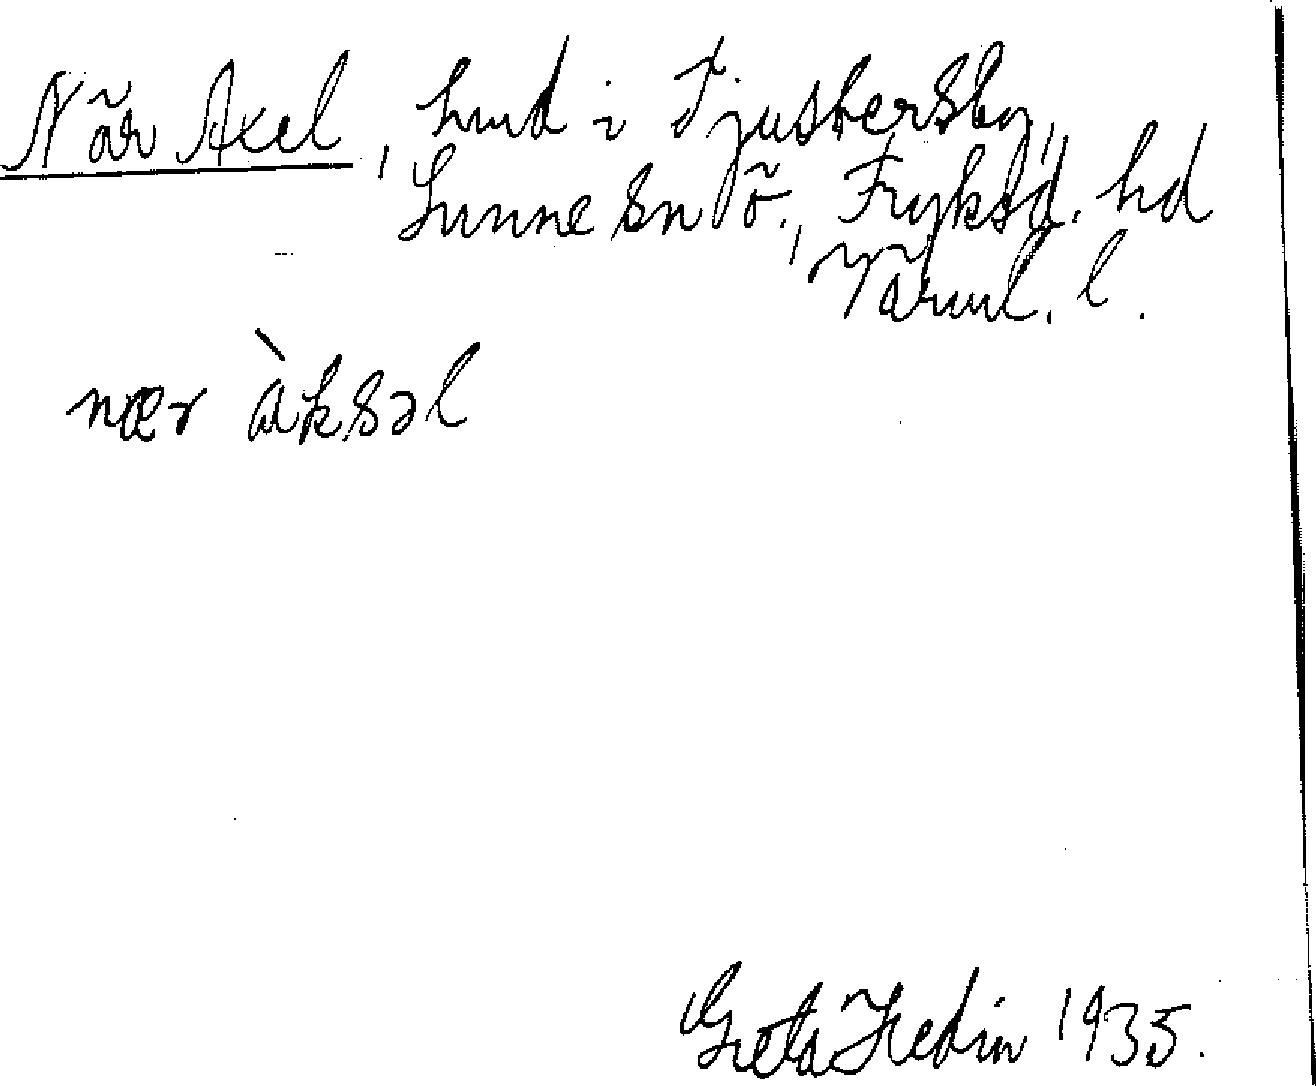 När Axel, hmd i Tjustersby,
Sunne sn Ö., Fryksd. hd
Värml. l.
nær àksəl
Greta Hedin 1935.